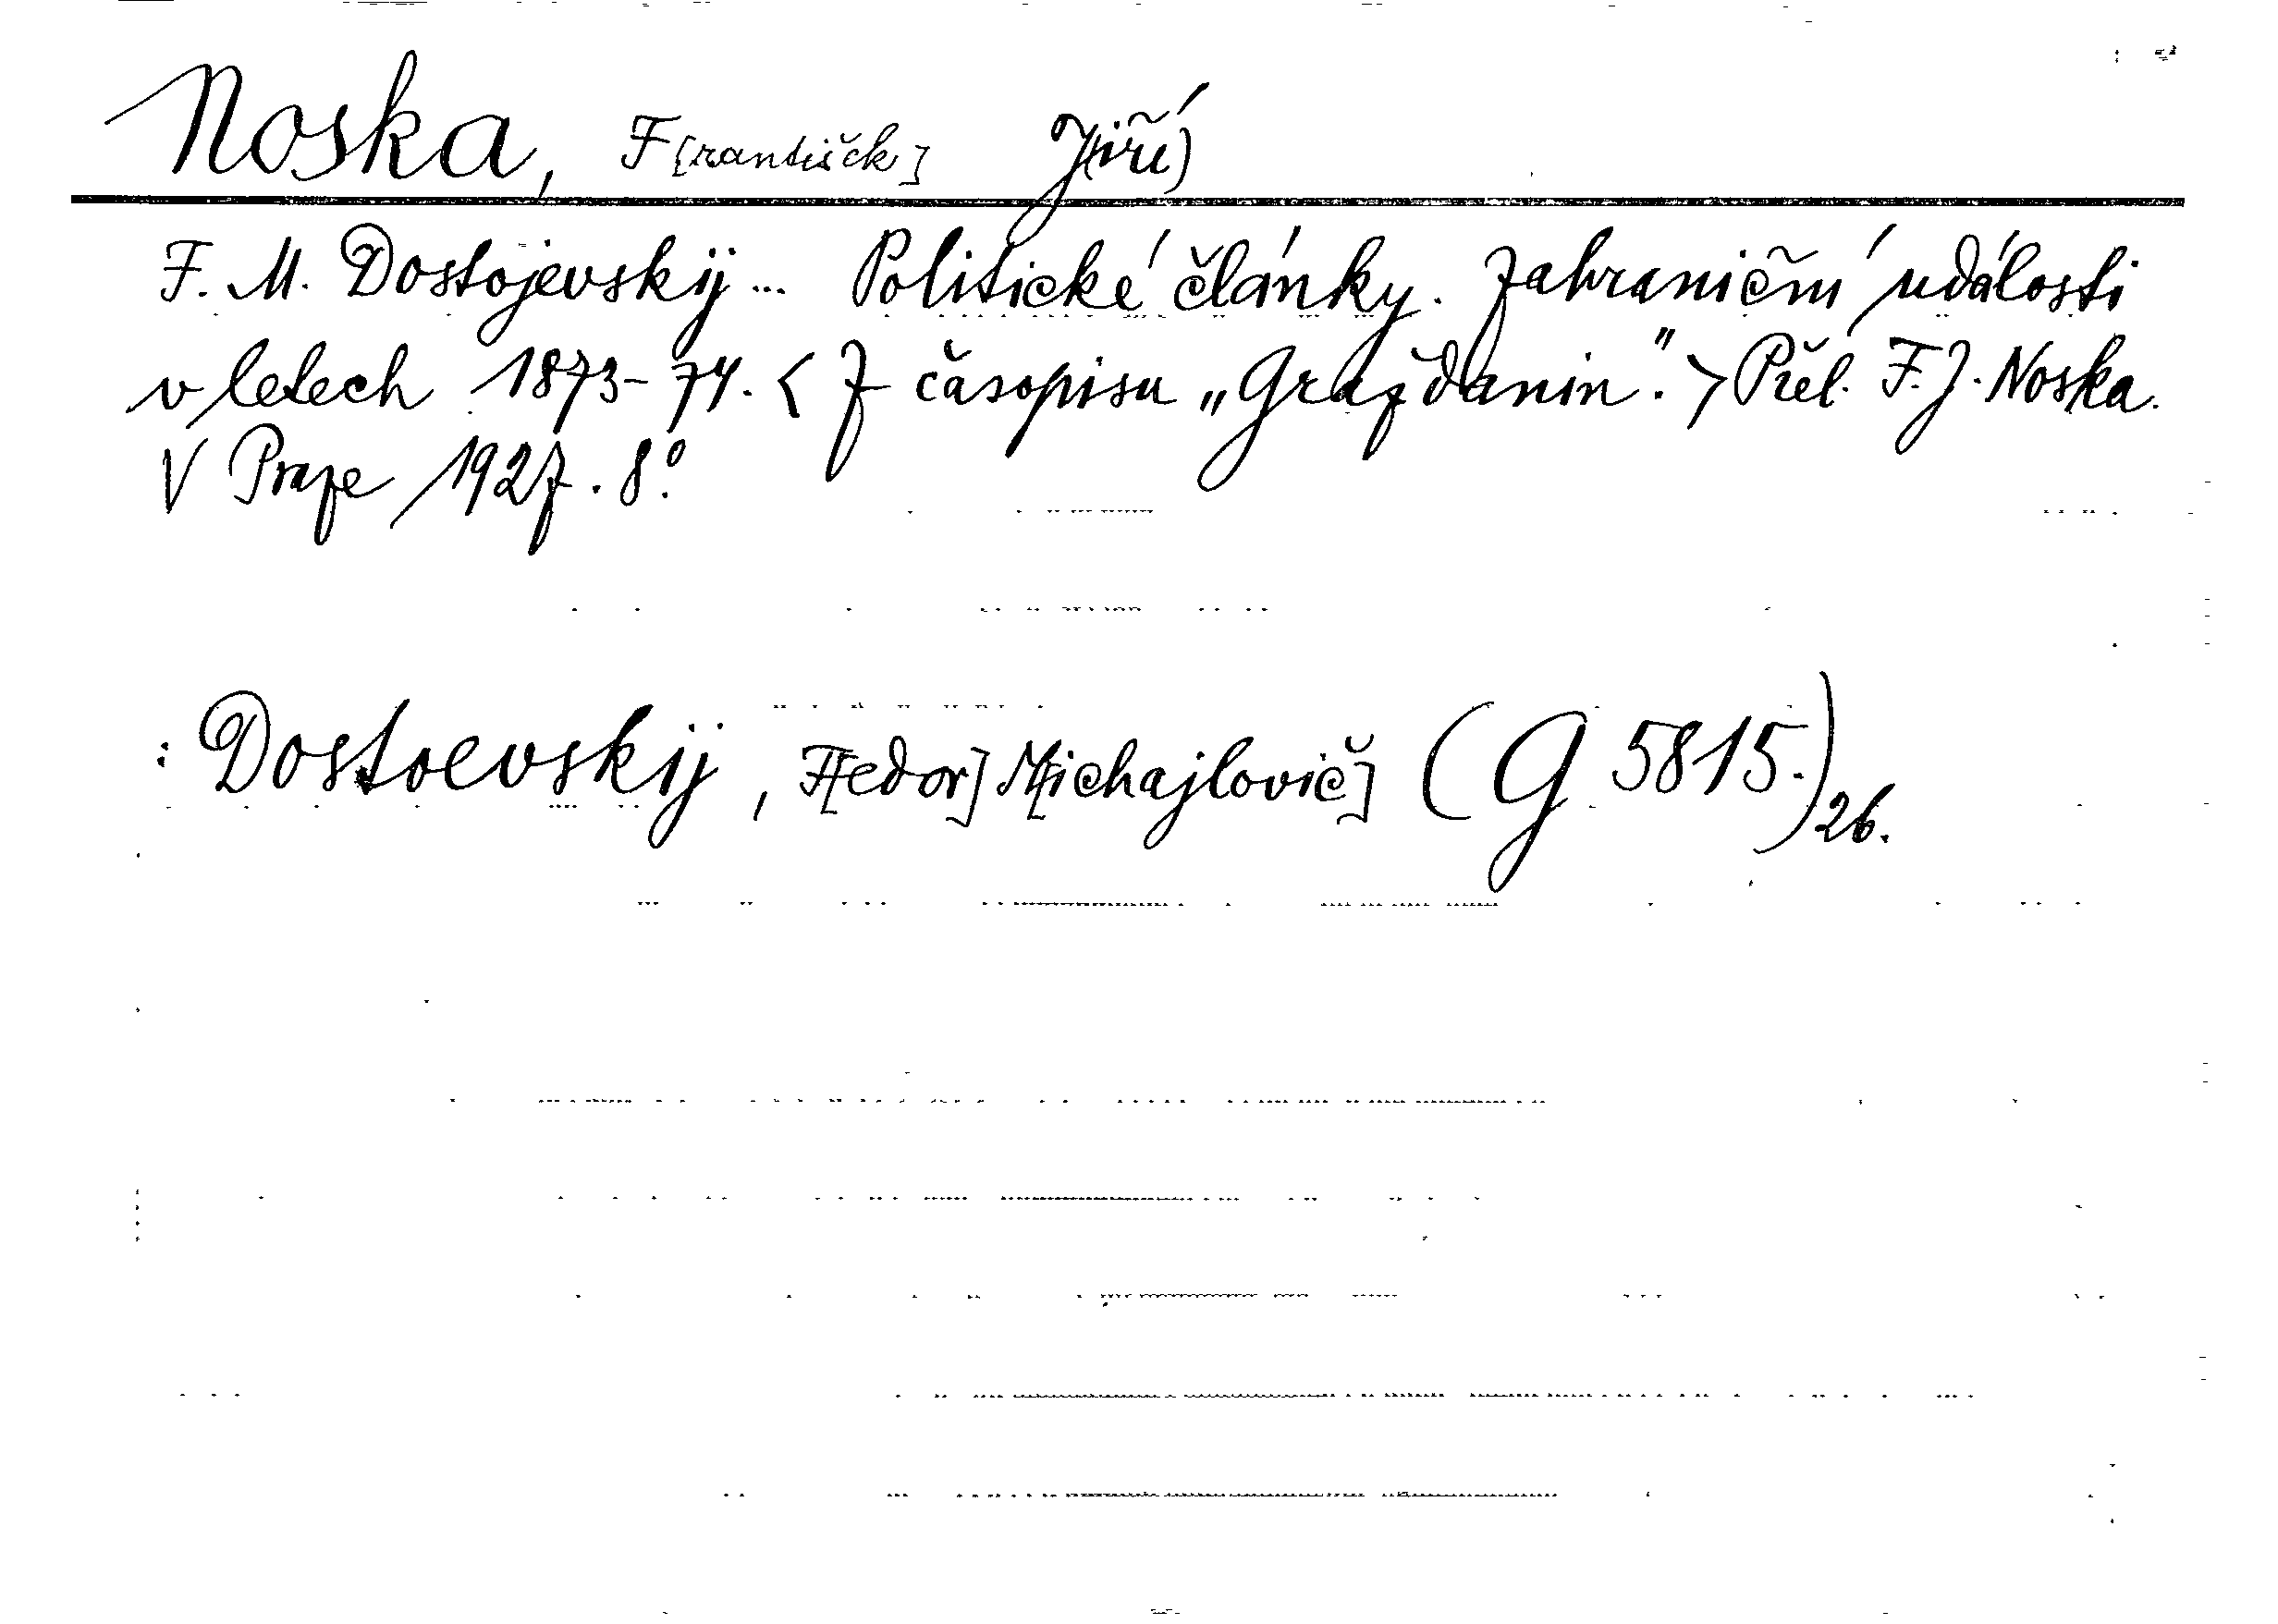 Noska, F[rantišek] J(iří)
F. M. Dostojevskij ... Politické články. Zahraniční události
v letech 1873-74. < Z časopisu „Graždanin". > Přel. F. J. Noska.
V Praze 1927. 8°.
: Dostoevskij, F[edor] M[ichajlovič] (G 5815.) 26.